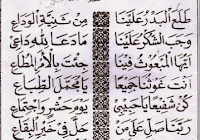 طَلَعَ الْبَدْرُ عَلَيْنَا مِنْ ثَنِيَّةِ الْوَدَاعِ
وَجَبَ الشُّكْرُ عَلَيْنَا مَا دَعَا لِلّٰهِ دَاعِي
أَيُّهَا الْمَبْعُوثُ فِينَا جِئْتَ بِالْأَمْرِ الْمُطَاعِ
أَنْتَ غَوْثُنَا جَمِيعًا يَا مُجَمَّلَ الطِّبَاعِ
كُنْ شَفِيعًا يَا حَبِيبِي يَوْمَ حَشْرٍ وَاجْتِمَاعِ
رَبَّنَا صَلِّ عَلَى مَنْ حَلَّ فِي خَيْرِ الْبِقَاعِ